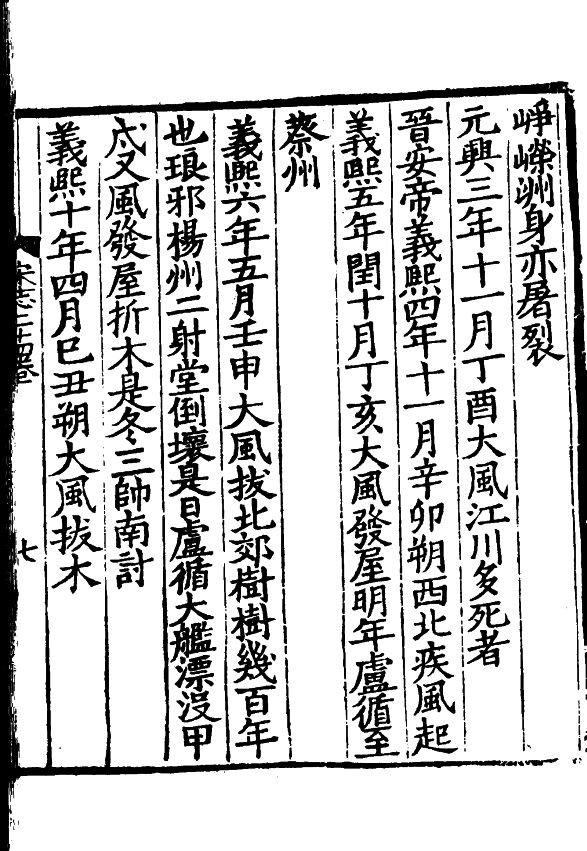 崢嶸洲身亦屠裂
元興三年十一月丁酉大風江川多死者
晉安帝義熙四年十一月辛卯朔西北疾風起
義熙五年閏十月丁亥大風發屋明年盧循至
蔡州
義熙六年五月壬申大風拔北郊樹樹幾百年
也琅邪楊州二射堂倒壞是日盧循大艦漂沒甲
戍又風發屋折木是冬三帥南討
義熙十年四月巳丑朔大風拔木
七